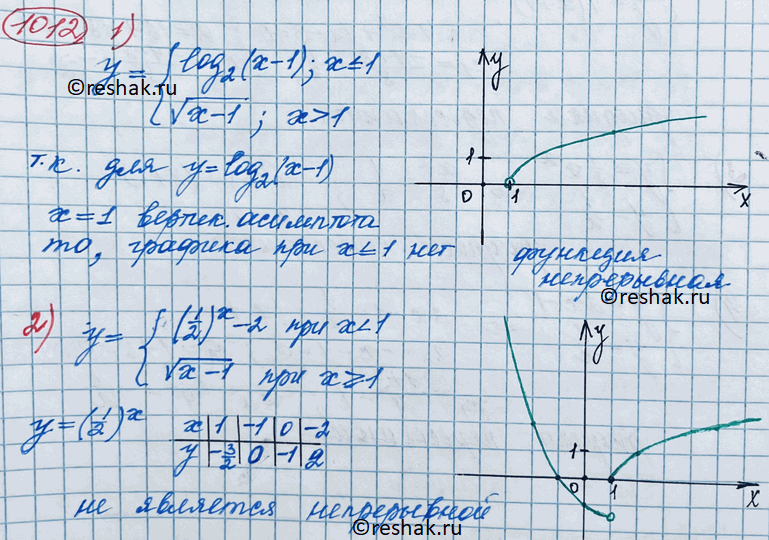 1012 1)
y = { log₂(x-1); x≤1
©reshak.ru
√x-1 ; x>1
т.к. для y=log₂(x-1)
x=1 вертик. асимптота
то, графика при x≤1 нет
y
1
0 1 x
функция
непрерывная
©reshak.ru
2) y = { (1/2)^x -2 при x<1
√x-1 при x≥1
y=(1/2)^x
x | 1 | -1 | 0 | -2
y | -3/2 | 0 | -1 | 2
не является непрерывной
©reshak.ru
y
1
0 1 x